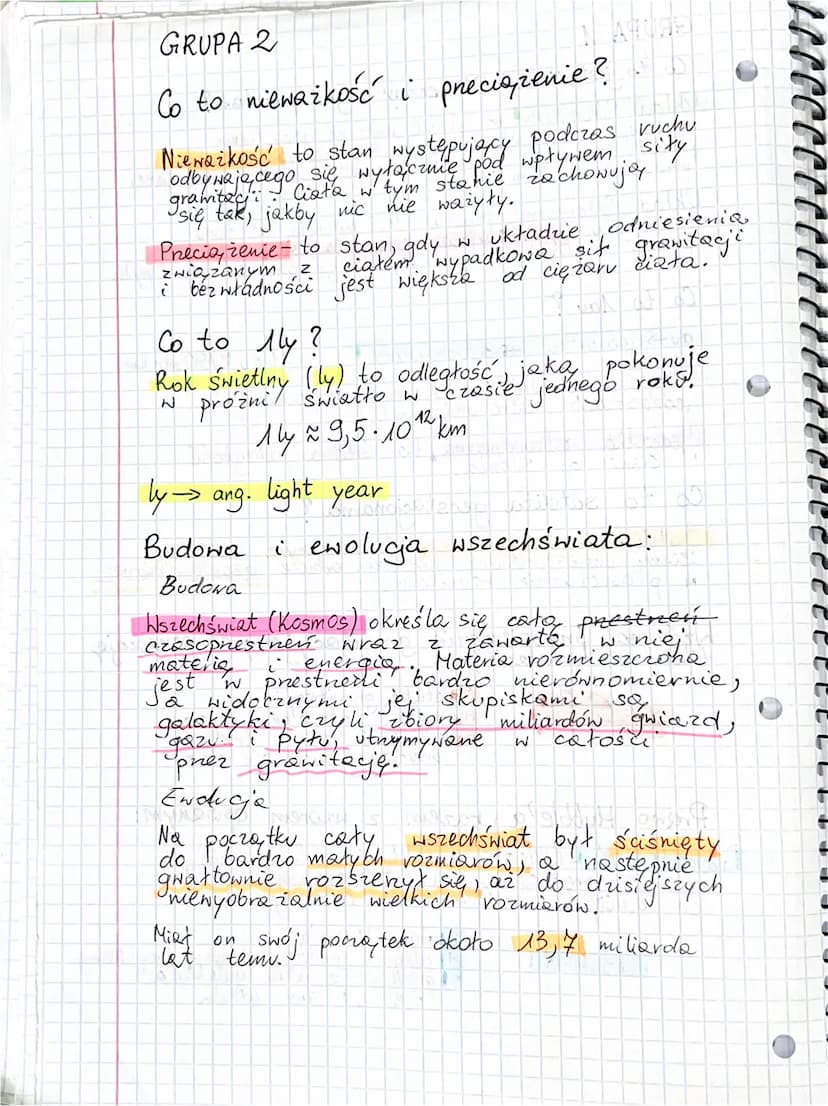 GRUPA 2
Co to nieważkość i przeciążenie?
Nieważkość to stan występujący podczas ruchu
odbywającego się wyłącznie pod wpływem siły
grawitacji. Ciała w tym stanie zachowują
się tak, jakby nic nie ważyły.
Przeciążenie - to stan, gdy w układzie odniesienia
związanym z ciałem wypadkowa sił grawitacji
i bezwładności jest większa od ciężaru ciała.
Co to 1ly?
Rok świetlny (ly) to odległość, jaką pokonuje
w próżni światło w czasie jednego roku.
1ly ≈ 9,5·10¹² km
ly → ang. light year
Budowa i ewolucja wszechświata:
Budowa
Wszechświat (Kosmos) określa się całą przestrzeń
czasoprzestrzeń wraz z zawartą w niej
materią i energią. Materia rozmieszczona
jest w przestrzeni bardzo nierównomiernie,
a widocznymi jej skupiskami są
galaktyki, czyli zbiory miliardów gwiazd,
gazu i pyłu, utrzymywane w całości
przez grawitację.
Ewolucja
Na początku cały wszechświat był ściśnięty
do bardzo małych rozmiarów, a następnie
gwałtownie rozszerzył się, aż do dzisiejszych
niewyobrażalnie wielkich rozmiarów.
Miał on swój początek około 13,7 miliarda
lat temu.